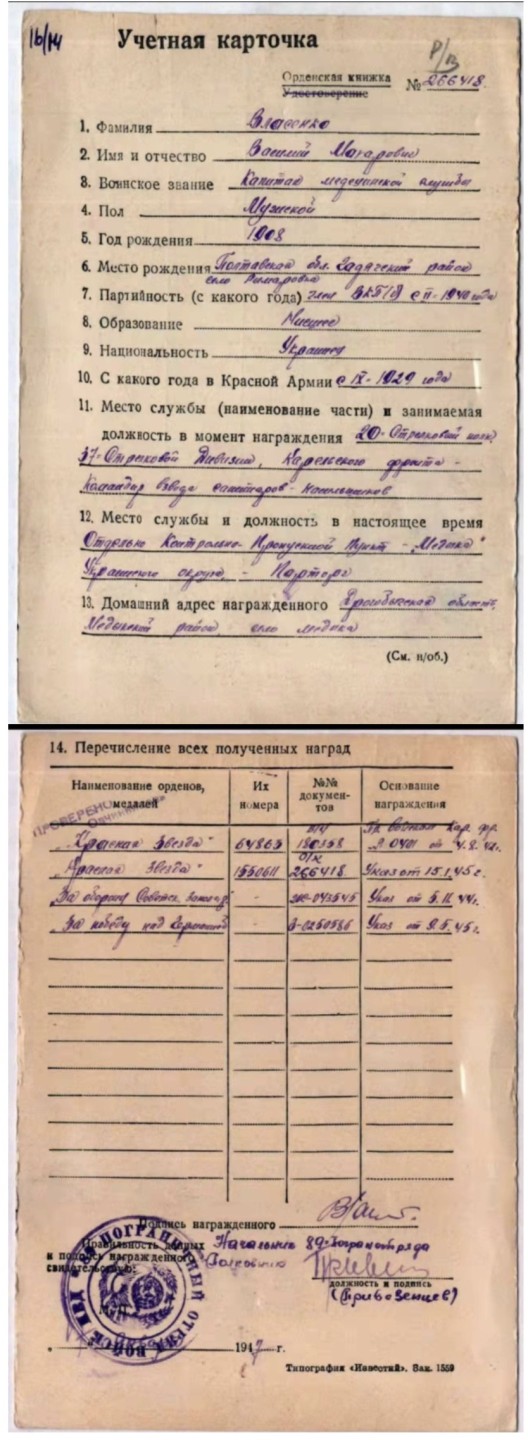 16/14
Учетная карточка
Р/В
Орденская книжка
Удостоверение
№ 266418.
1. Фамилия Власенко
2. Имя и отчество Василий Макарович
3. Воинское звание Капитан медецинской службы
4. Пол Мужской
5. Год рождения 1908
6. Место рождения Полтавская обл. Гадячский район
село
7. Партийность (с какого года) член ВКП(б) с II-1940 года
8. Образование Низшее
9. Национальность Украинец
10. С какого года в Красной Армии с IX-1929 года
11. Место службы (наименование части) и занимаемая
должность в момент награждения 20-Стрелковый полк,
37-Стрелковой Дивизии, Карельского фронта -
Командир взвода санитаров-носильщиков
12. Место службы и должность в настоящее время
Отдельно Контрольно-Пропускной Пункт - „Медика"
Украинского округа - Парторг
13. Домашний адрес награжденного Дрогобычская область,
Медыкский район, село Медика
(См. н/об.)
14. Перечисление всех полученных наград
Наименование орденов, медалей
Их номера
№№ документов
Основание награждения
ПРОВЕРЕНО
„Красная Звезда" 64865 180158 Пр. Войскам Кар. фр. № 0401 от 4.8.42г.
„Красная Звезда" 1550611 о/к 266418 Указ от 15.1.45г.
„За оборону Советск. Заполяр." - 043545 Указ от 5.12.44г.
„За победу над Германией" - З-0250586 Указ от 9.5.45г.
Подпись награжденного
Правильность данных
и подпись награжденного
свидетельствую:
Начальник 89 Погранотряда
Полковник
должность и подпись
(Кривезенцев)
М. П.
ПОГРАНИЧНЫЙ ОТРЯД ВОЙСК МВД
1947 г.
Типография «Известий». Зак. 1559